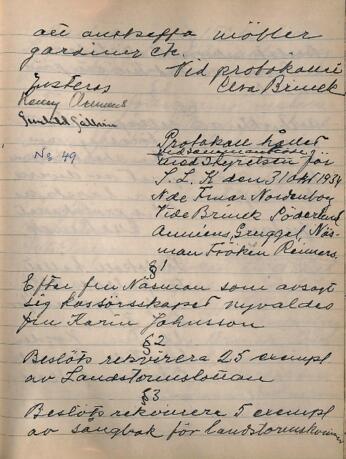 att anskaffa möbler
gardiner etc.
Vid protokollet
Elsa Brinck
Justeras
Ronny Asmens
Gunhild Gällnö
№ 49
Protokoll hållet
vid sammanträde
med styrelsen för
S. L. K. den 31 okt 1934
N de Fruar Nordenborg
Vide Brinck Söderlund
Amnéus, Greggel, Näs-
man Fröken Reiners.
§ 1
Efter fru Näsman som avsagt
sig kassörsskapet nyvaldes
fru Karin Johnsson
§ 2
Beslöts rekvirera 25 exempl
av Landstormslottan
§ 3
Beslöts rekvirera 5 exempl
av sångbok för landstormskvinnor